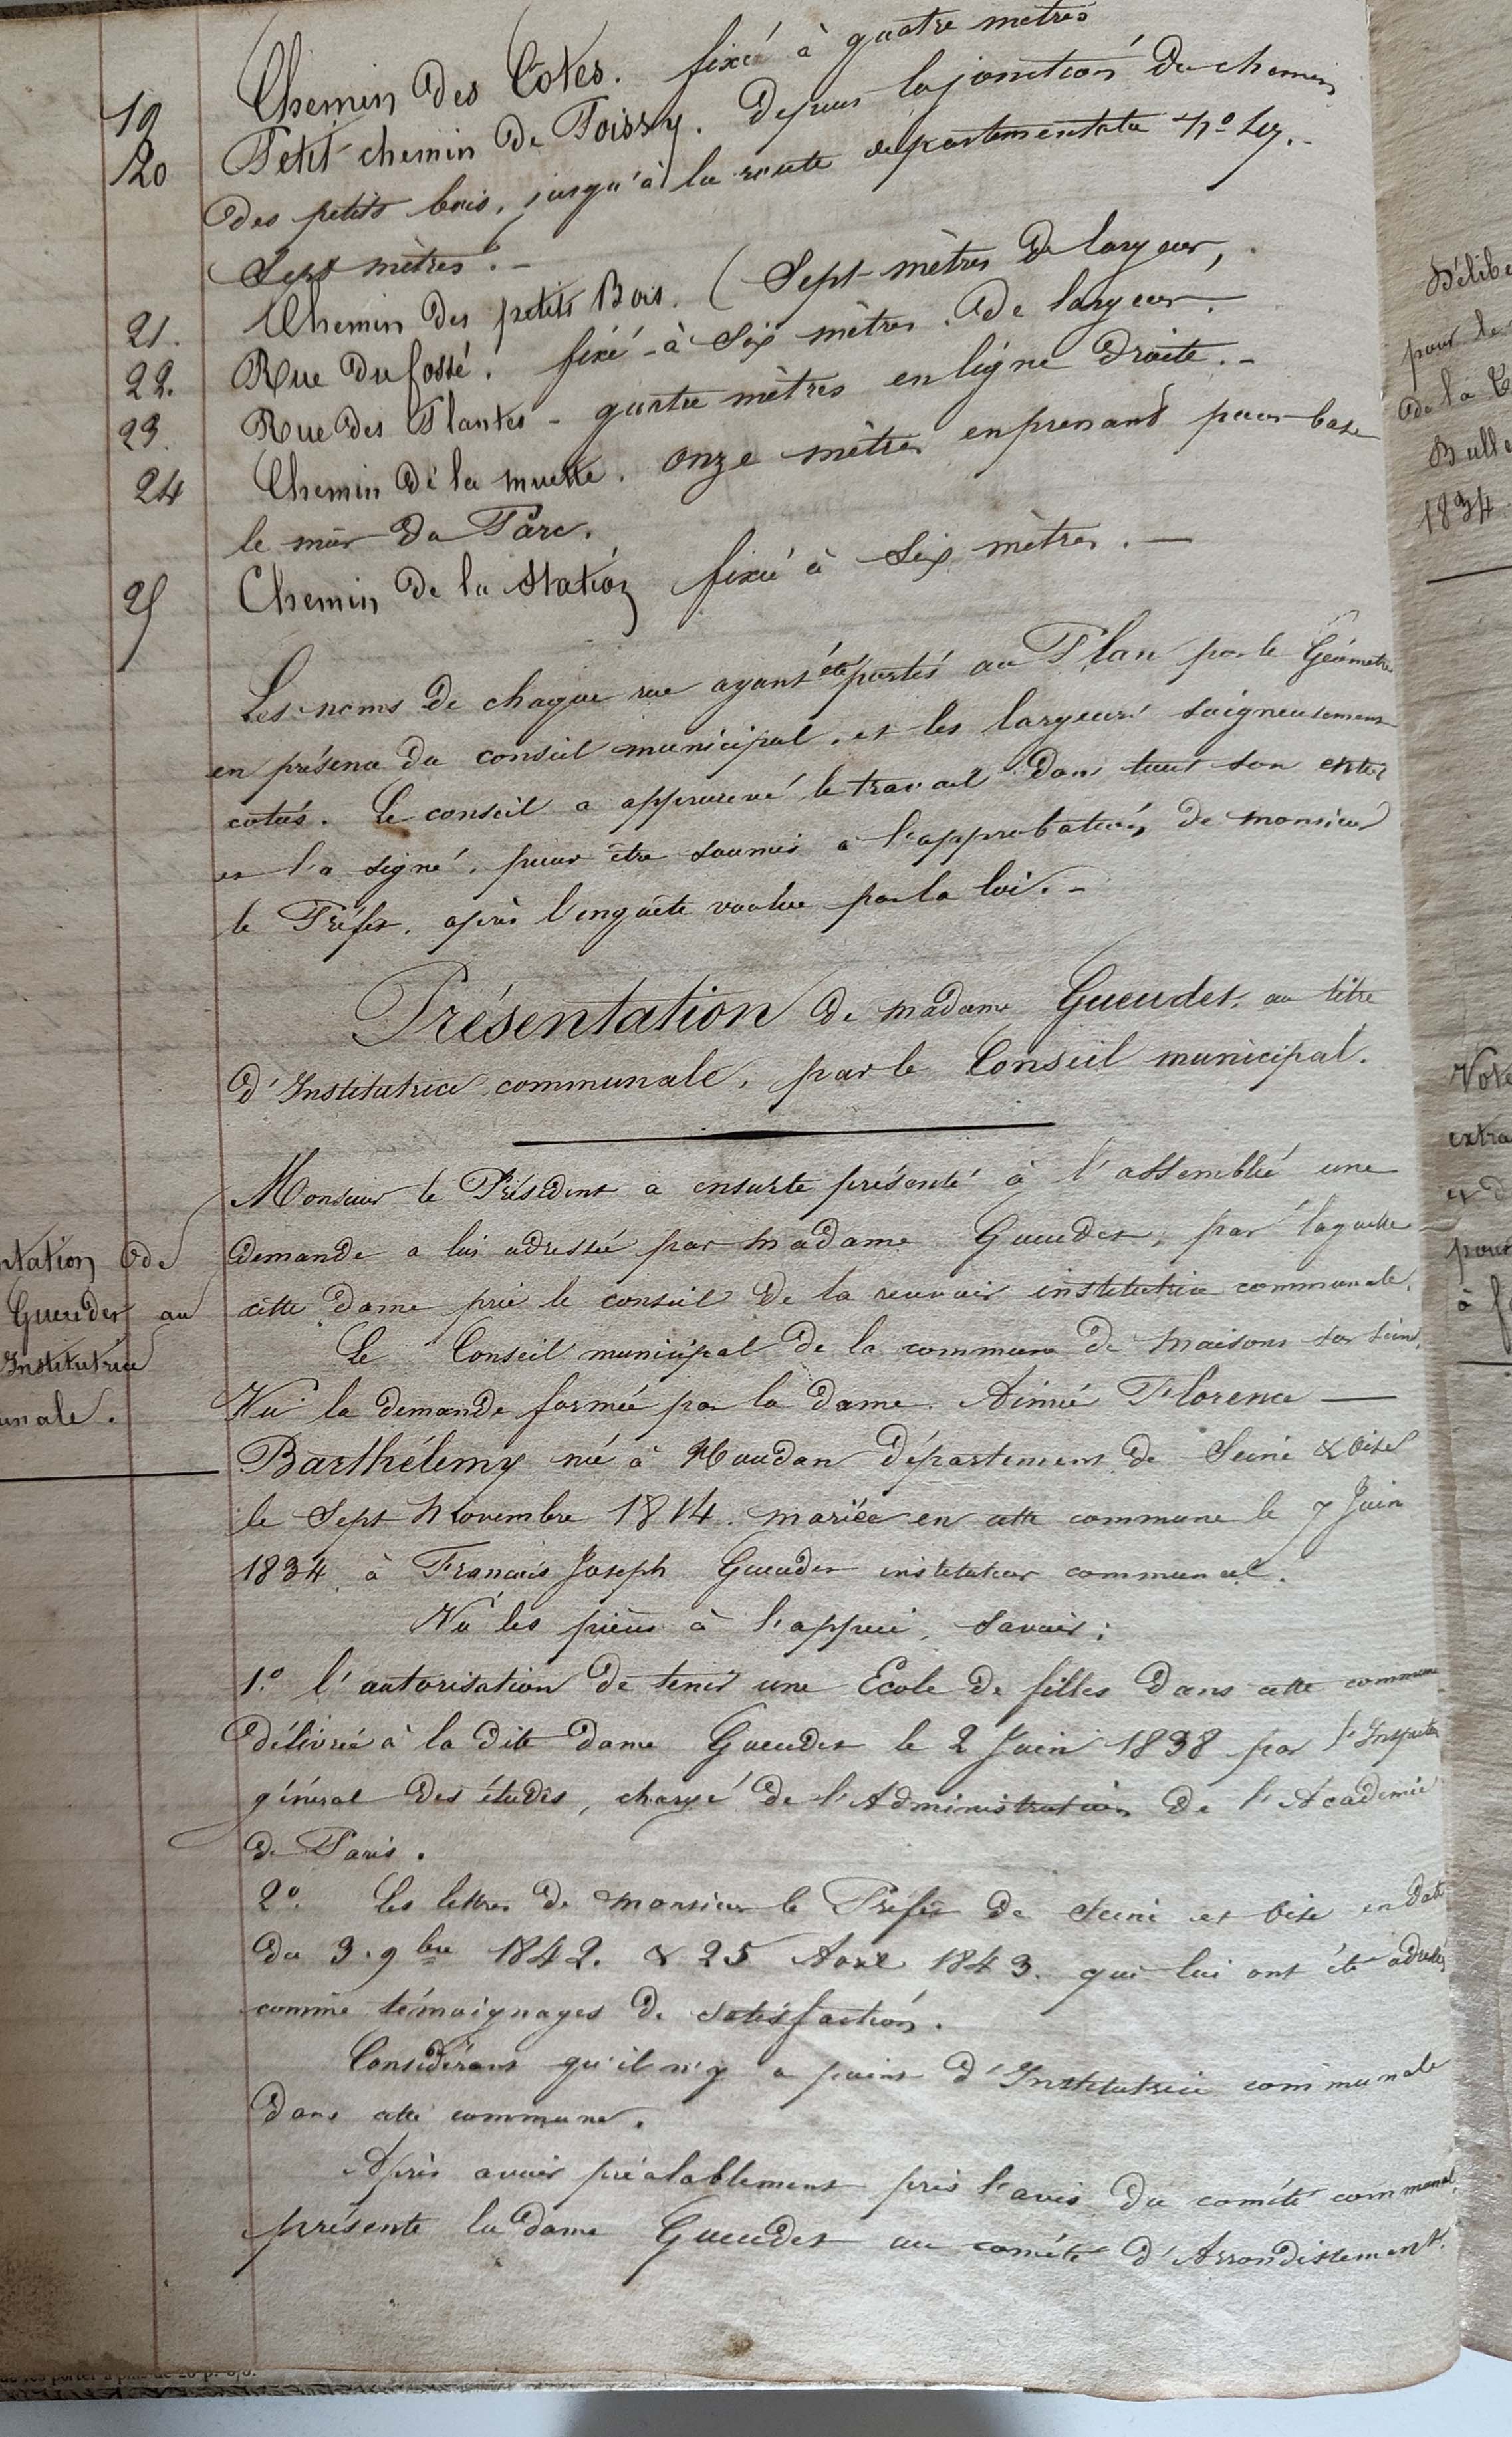 19 Chemin des Côtes. fixé à quatre mètres
20 Petit chemin de Poissy. Depuis la jonction du chemin
des petits bois, jusqu'à la route départementale n°
Sept mètres. -
21. Chemin des petits Bois. (Sept mètres de largeur,
22. Rue du fossé. fixé à Six mètres. de largeur.
23. Rue des Plantes - quatre mètres en ligne droite. -
24 Chemin de la muette. onze mètres en prenant pour base
le mur du Parc.
25 Chemin de la Station fixée à Six mètres. —
Les noms de chaque rue ayant été portés au Plan par le Géomètre
en présence du conseil municipal, et les largeurs soigneusement
cotées. Le conseil a approuvé le travail dans tout son entier
et l'a signé, pour être soumis à l'approbation de monsieur
le Préfet, après l'enquête voulue par la loi. -
Présentation de madame Gueudet, au titre
d'Institutrice communale, par le Conseil municipal.
ntation de
Gueudet au
Institutrice
unale.
Monsieur le Président a ensuite présenté à l'assemblée une
demande a lui adressée par Madame Gueudet, par laquelle
cette dame prie le conseil de la recevoir institutrice communale.
Le Conseil municipal de la commune de Maisons sur Seine,
Vu la demande formée par la dame Aimée Florence —
Barthélemy née à Houdan département de Seine & Oise
le Sept Novembre 1814. mariée en cette commune le 7 Juin
1834 à François Joseph Gueudet instituteur communal.
Vu les pièces à l'appui, Savoir:
1.° l'autorisation de tenir une Ecole de filles dans cette commune
délivrée à la dite dame Gueudet le 2 Juin 1838 par l'Inspecteur
général des études, chargé de l'Administration de l'Académie
de Paris.
2° Les lettres de monsieur le Préfet de Seine et Oise en date
du 3. 9bre 1842. & 25 Avril 1843. qui lui ont été adressées
comme témoignages de satisfaction.
Considérant qu'il n'y a point d'Institutrice communale
dans cette commune.
Après avoir préalablement pris l'avis du comité communal,
présente la dame Gueudet au comité d'Arrondissement.
Délibe
pour le
de la
Bulle
1834
Vote
extra
et d
pour
à